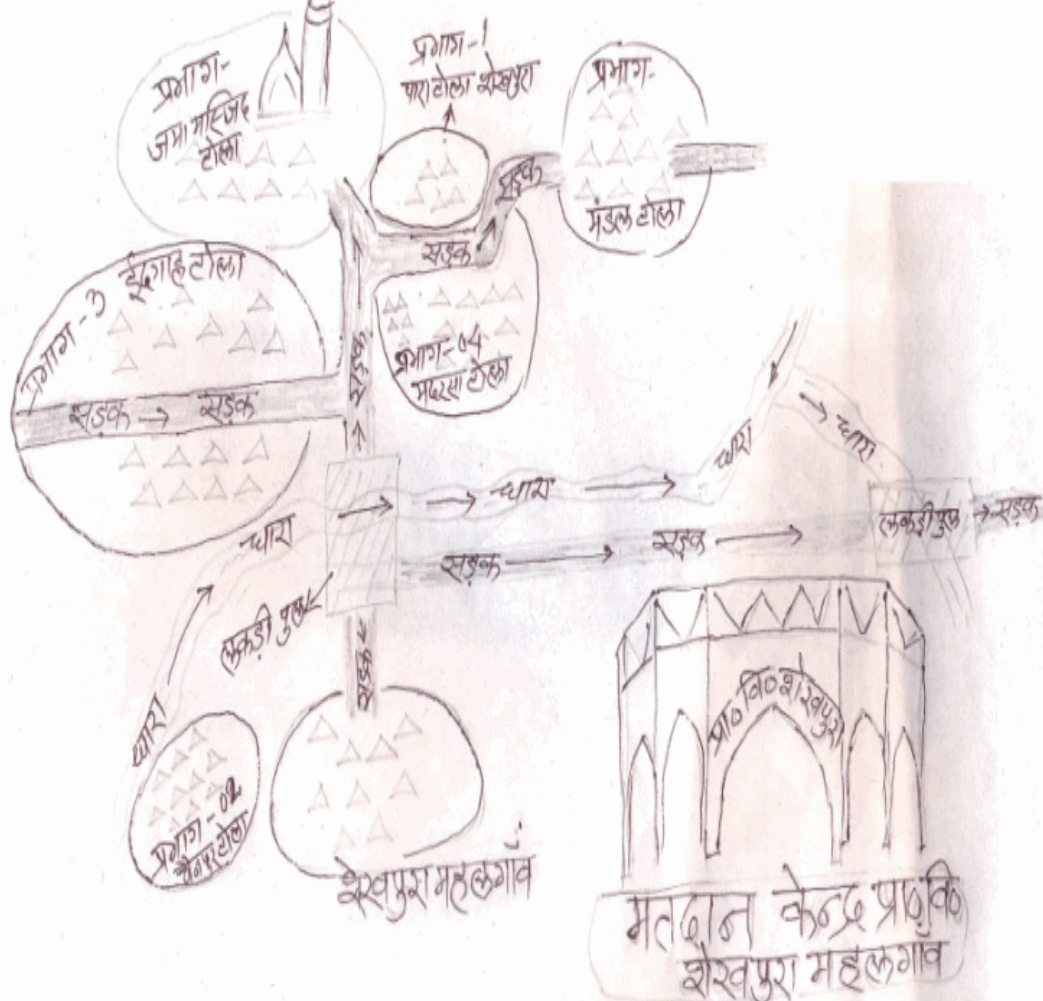 प्रभाग-
जमा मस्जिद
टोला
प्रभाग-1
पारा टोला शेखपुरा
प्रभाग-
मंडल टोला
सड़क
सड़क
प्रभाग-3 ईदगाह टोला
सड़क
सड़क
सड़क
प्रभाग-04
मदरसा टोला
धारा
धारा
धारा
धारा
धारा
लकड़ी पुल
सड़क
सड़क
लकड़ी पुल
सड़क
सड़क
प्रभाग-02
टोला
शेखपुरा महलगाँव
प्रा० वि० शेखपुरा
मतदान केन्द्र प्रा० वि०
शेखपुरा महलगाँव